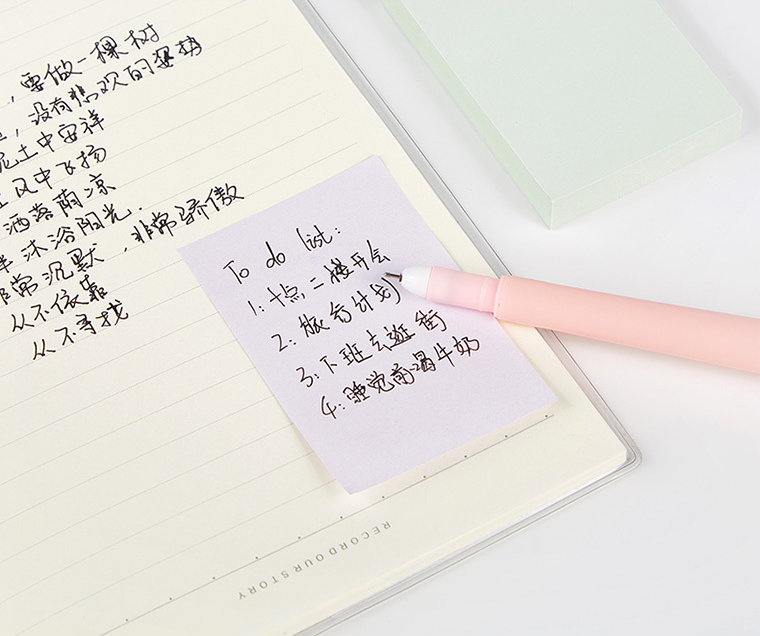 ，要做一棵树
，没有悲欢的姿势
土中安祥
风中飞扬
洒落荫凉
沐浴阳光.
非常沉默，非常骄傲
从不依靠
从不寻找
To do list:
1:十点二楼开会
2:旅行计划
3:下班去逛街
4:睡觉前喝牛奶
RECORD OUR STORY